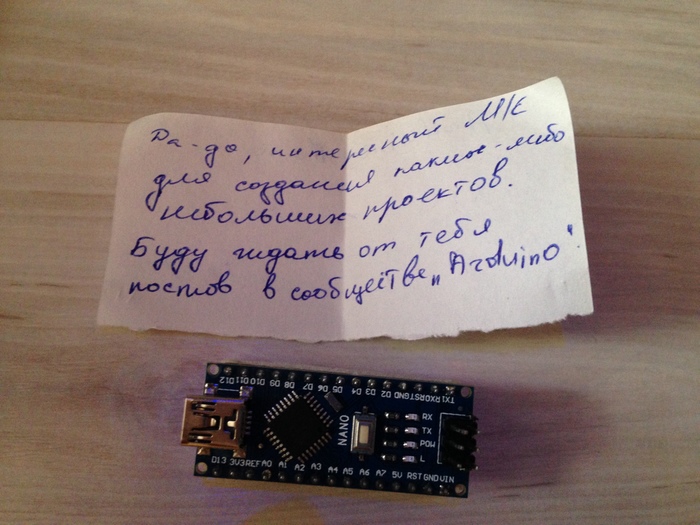 Да-да, интересный М/К
для создания каких-либо
небольших проектов.
Буду ждать от тебя
постов в сообществе „Arduino“.
D12 D11 D10 D9 D8 D7 D6 D5 D4 D3 D2 GND RST RX0 TX1
NANO
RX
TX
POW
L
D13 3V3 REF A0 A1 A2 A3 A4 A5 A6 A7 5V RST GND VIN